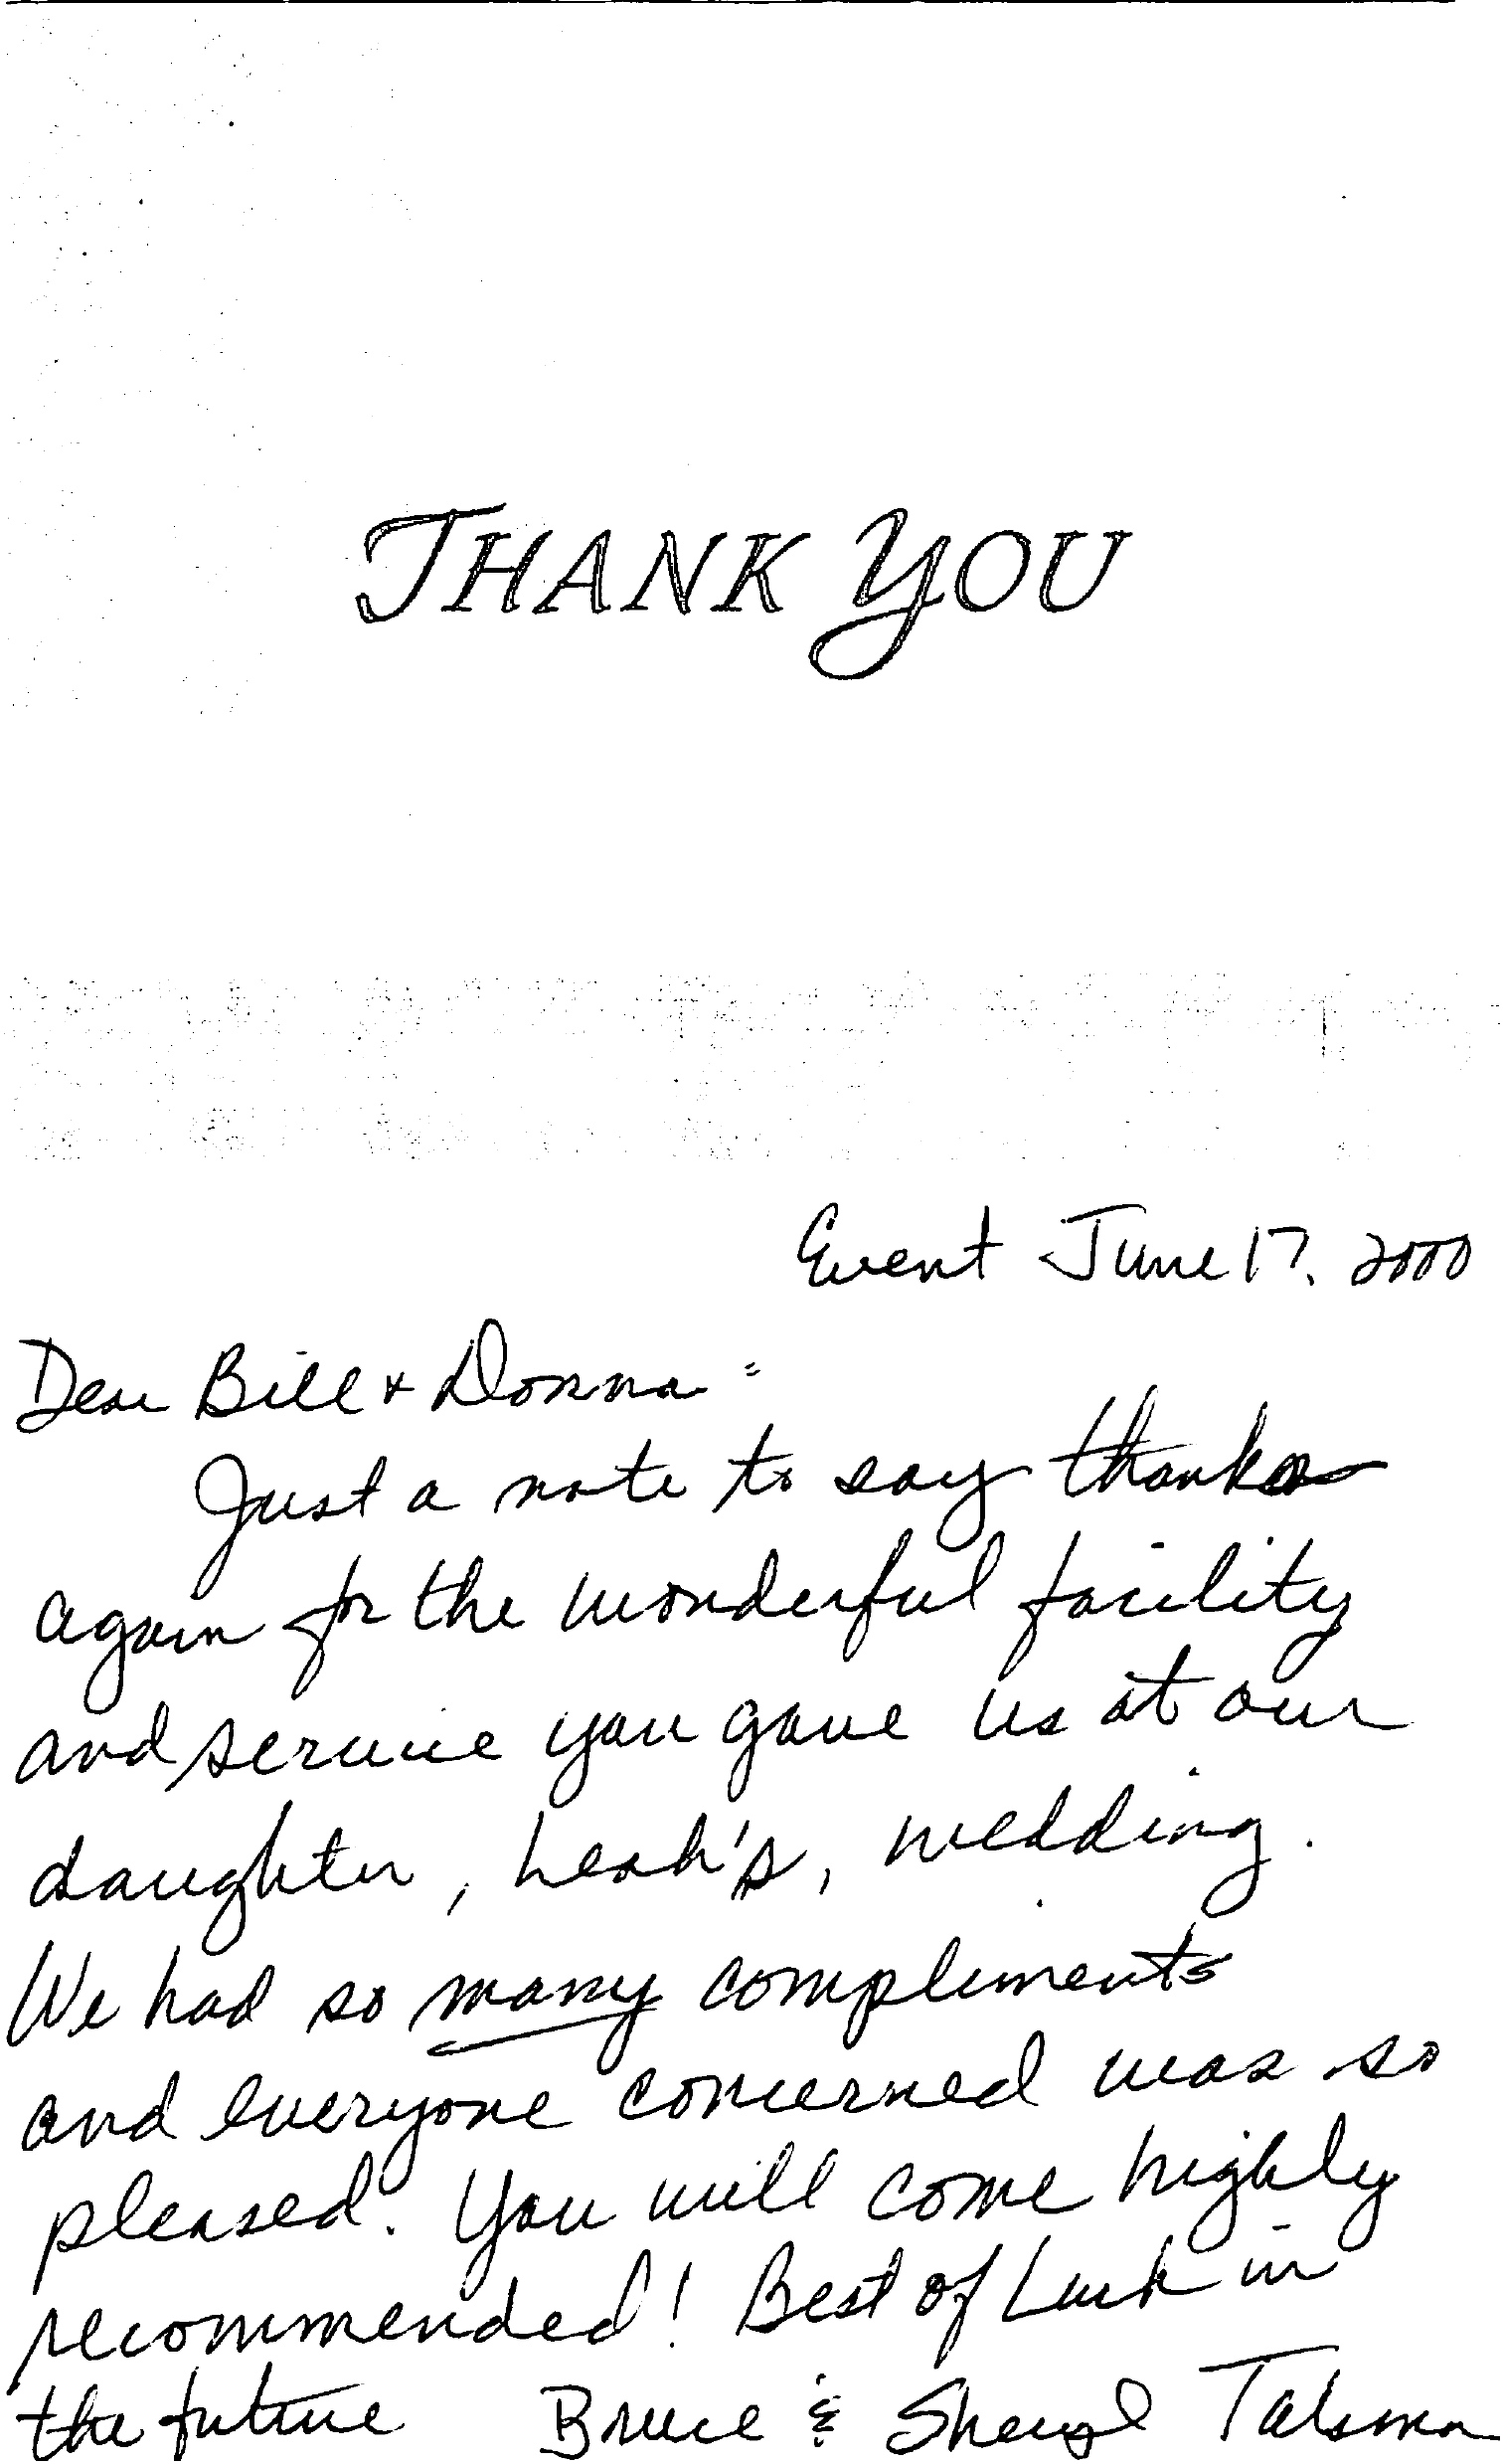 THANK YOU
Event June 17, 2000
Dear Bill + Donna =
Just a note to say thanks
again for the wonderful facility
and service you gave us at our
daughter, Leah's, wedding.
We had so many compliments
and everyone concerned was so
pleased. You will come highly
recommended! Best of Luck in
the future Bruce & Sheryl Talsma